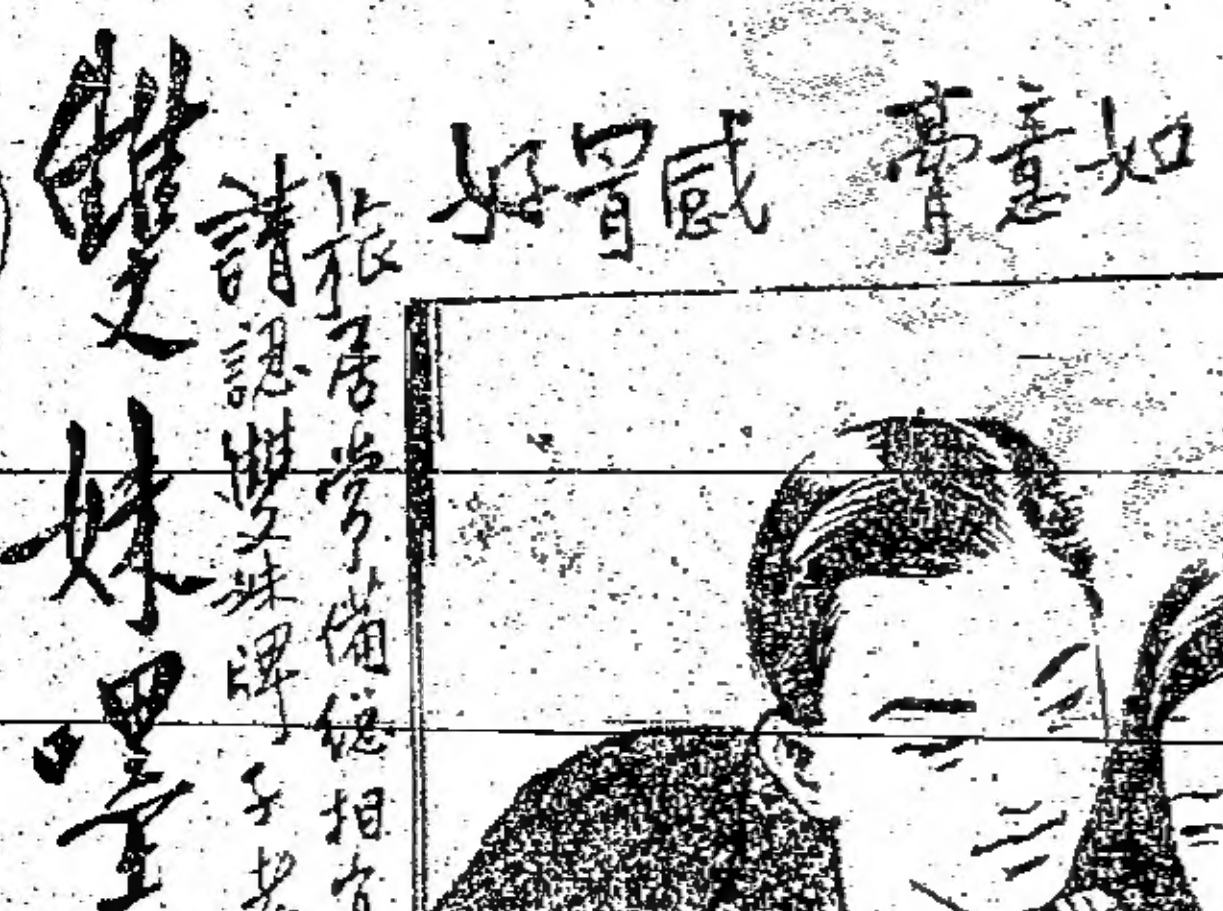 如意膏 感冒好
旅居常備總相
請認雙妹牌子
雙妹